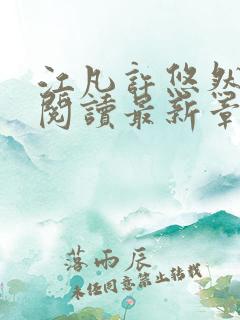 江凡許悠然
閱讀最新章
落雨辰
未经同意禁止转载